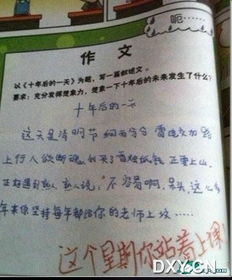 呃……
作 文
以《十年后的一天》为题，写一篇叙述文。
要求：充分发挥想象力，想象一下十年后的未来发生了什么？
十年后的一天
这天是清明节 细雨纷纷 雷电交加 路
上行人欲断魂
正要上山，
正好遇到熟人 熟人说：“不容易啊，
年来你坚持每年都给你的老师上坟……
这个星期你站着上课
DXY.CN